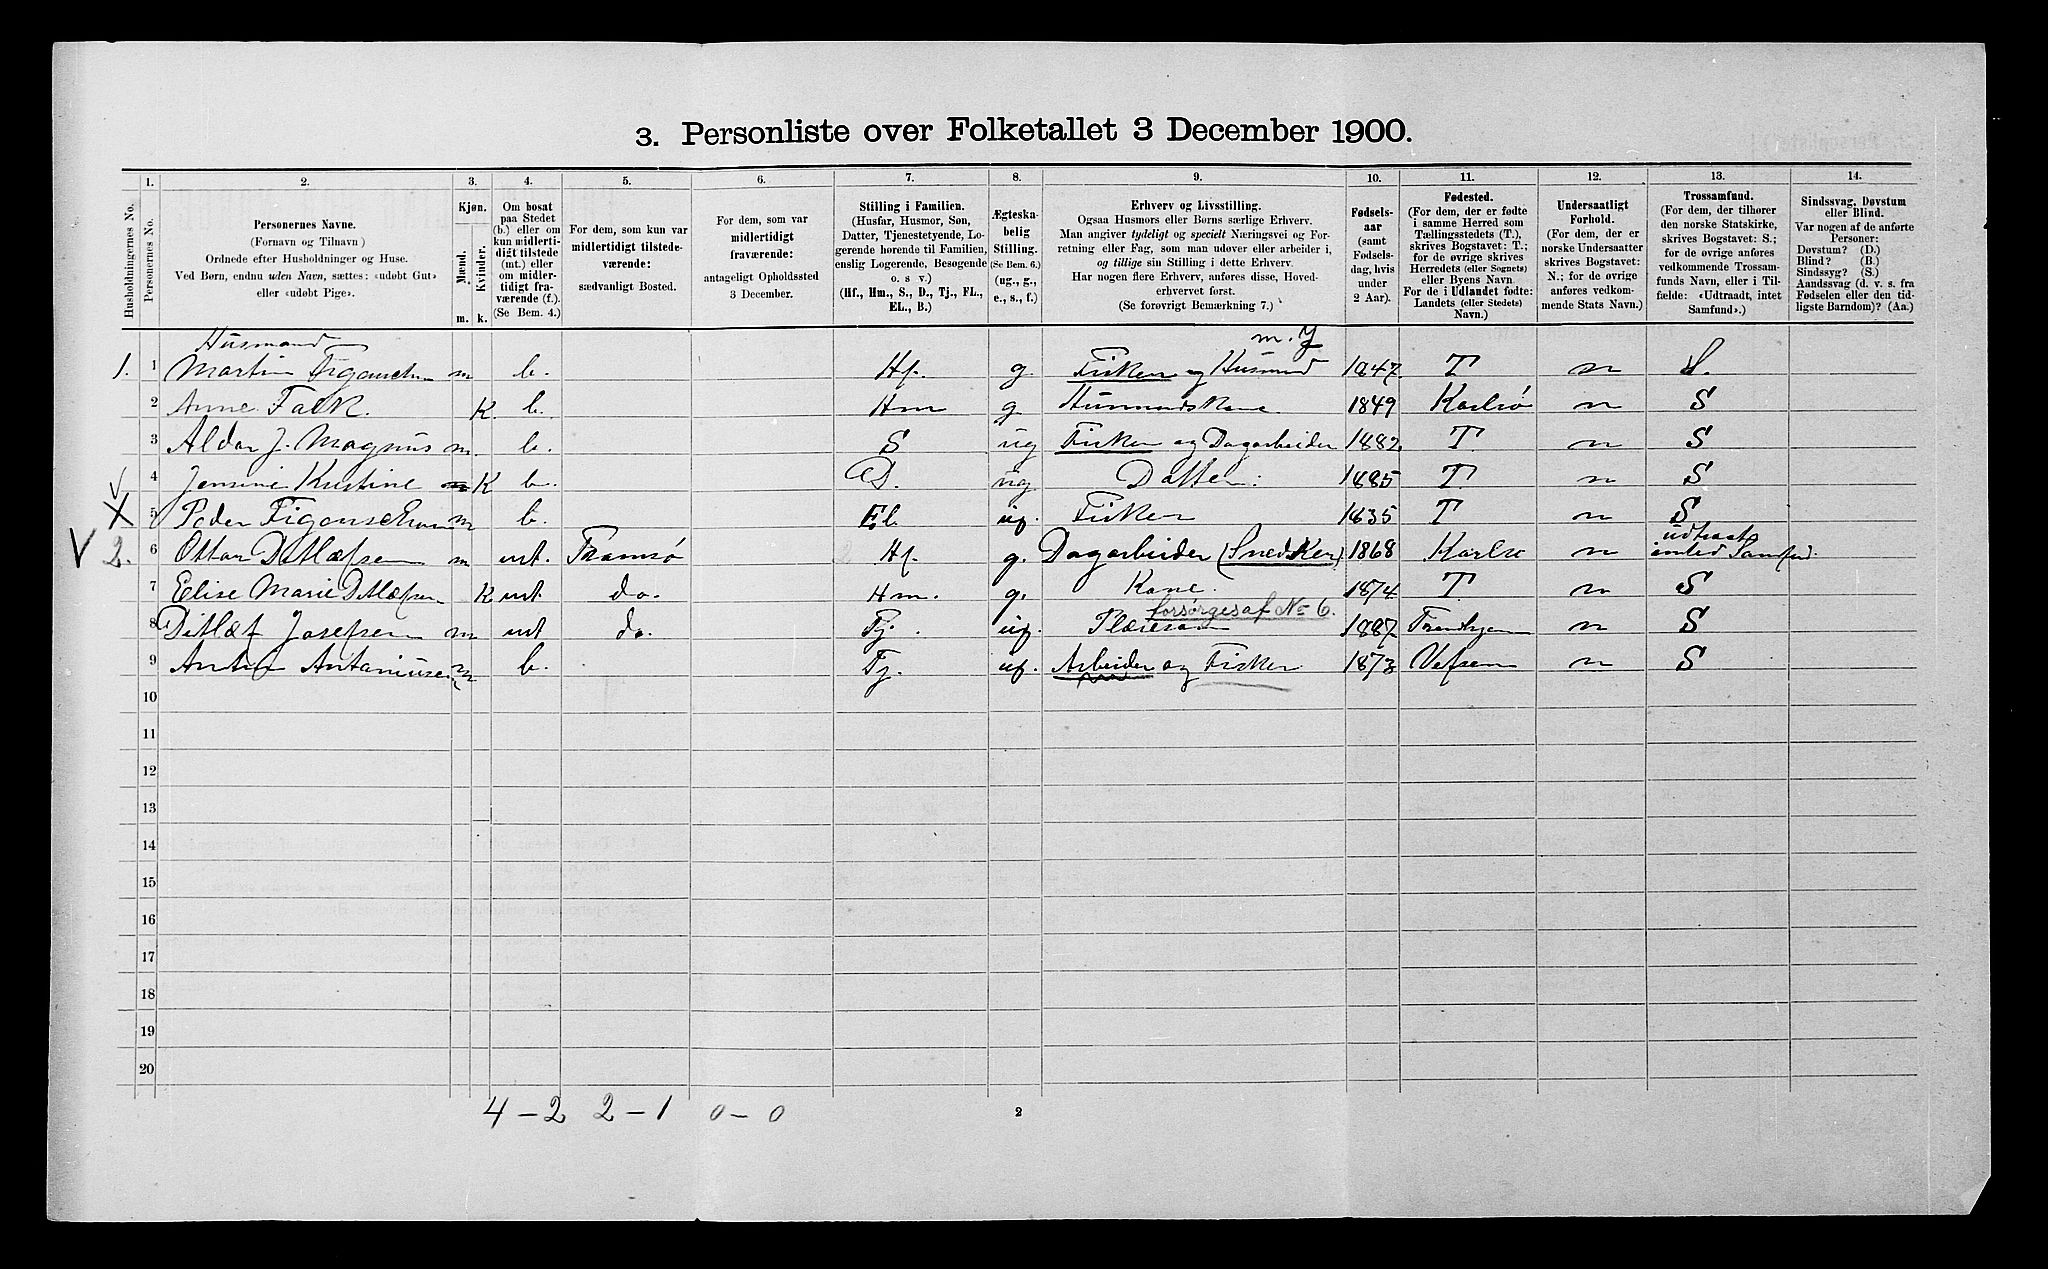 3. Personliste over Folketallet 3 December 1900.
1. 2. 3. 4. 5. 6. 7. 8. 9. 10. 11. 12. 13. 14.
Husholdningernes No.
Personernes No.
Personernes Navne.
(Fornavn og Tilnavn)
Ordnede efter Husholdninger og Huse.
Ved Børn, endnu uden Navn, sættes: «udøbt Gut»
eller «udøbt Pige».
Kjøn.
Mænd.
Kvinder.
m. k.
Om bosat
paa Stedet
(b.) eller om
kun midlerti-
digt tilstede
(mt.) eller
om midler-
tidigt fra-
værende (f.).
(Se Bem. 4.)
For dem, som kun var
midlertidigt tilstede-
værende:
sædvanligt Bosted.
For dem, som var
midlertidigt
fraværende:
antageligt Opholdssted
3 December.
Stilling i Familien.
(Husfar, Husmor, Søn,
Datter, Tjenestetyende, Lo-
gerende hørende til Familien,
enslig Logerende, Besøgende
o. s v.)
(Hf., Hm., S., D., Tj., FL.,
EL., B.)
Ægteska-
belig
Stilling.
(Se Bem. 6.)
(ug., g.,
e., s., f.)
Erhverv og Livsstilling.
Ogsaa Husmors eller Børns særlige Erhverv.
Man angiver tydeligt og specielt Næringsvei og For-
retning eller Fag, som man udøver eller arbeider i,
og tillige sin Stilling i dette Erhverv.
Har nogen flere Erhverv, anføres disse, Hoved-
erhvervet først.
(Se forøvrigt Bemærkning 7.)
Fødsels-
aar
(samt
Fødsels-
dag, hvis
under
2 Aar).
Fødested.
(For dem, der er fødte
i samme Herred som
Tællingsstedets (T.),
skrives Bogstavet: T.;
for de øvrige skrives
Herredets (eller Sognets)
eller Byens Navn.
For de i Udlandet fødte:
Landets (eller Stedets)
Navn.)
Undersaatligt
Forhold.
(For dem, der er
norske Undersaatter
skrives Bogstavet:
N.; for de øvrige
anføres vedkom-
mende Stats Navn.)
Trossamfund.
(For dem, der tilhører
den norske Statskirke,
skrives Bogstavet: S.;
for de øvrige anføres
vedkommende Trossam-
funds Navn, eller i Til-
fælde: «Udtraadt, intet
Samfund».)
Sindssvag, Døvstum
eller Blind.
Var nogen af de anførte
Personer:
Døvstum? (D.)
Blind? (B.)
Sindssyg? (S.)
Aandssvag (d. v. s. fra
Fødselen eller den tid-
ligste Barndom)? (Aa.)
Husmand m. J
1. 1 Martin m b. Hf. g. Fisker og Husmand 1847 T n S.
2 Anne Falk. K b. Hm g. Husmandskone 1849 Karlsø n S
3 Aldor J. Magnus m. b. S ug Fisker og Dagarbeider 1882 T n S
4 Jensine Kristine K b. D. ug. Datter. 1885 T n S
X 5 Peder m b. El ug. Fisker 1835 T n S
udtraadt
V 2. 6 Ottar Ditlefsen m mt. Tromsø Hf. g. Dagarbeider (Snedker) 1868 Karlsø n intet Samfund.
7 Elise Marie Ditlefsen K mt do. Hm. g. Kone. 1874 T. n S
forsørges af No 6.
8 Ditlef Josefsen m mt do. Tj. ug. Pleiesøn 1887 n S
9 Anton Antoniusen m b. Tj. ug. Arbeider og Fisker 1873 Vefsen n S
10
11
12
13
14
15
16
17
18
19
20
4 – 2 2 – 1 0 – 0 2